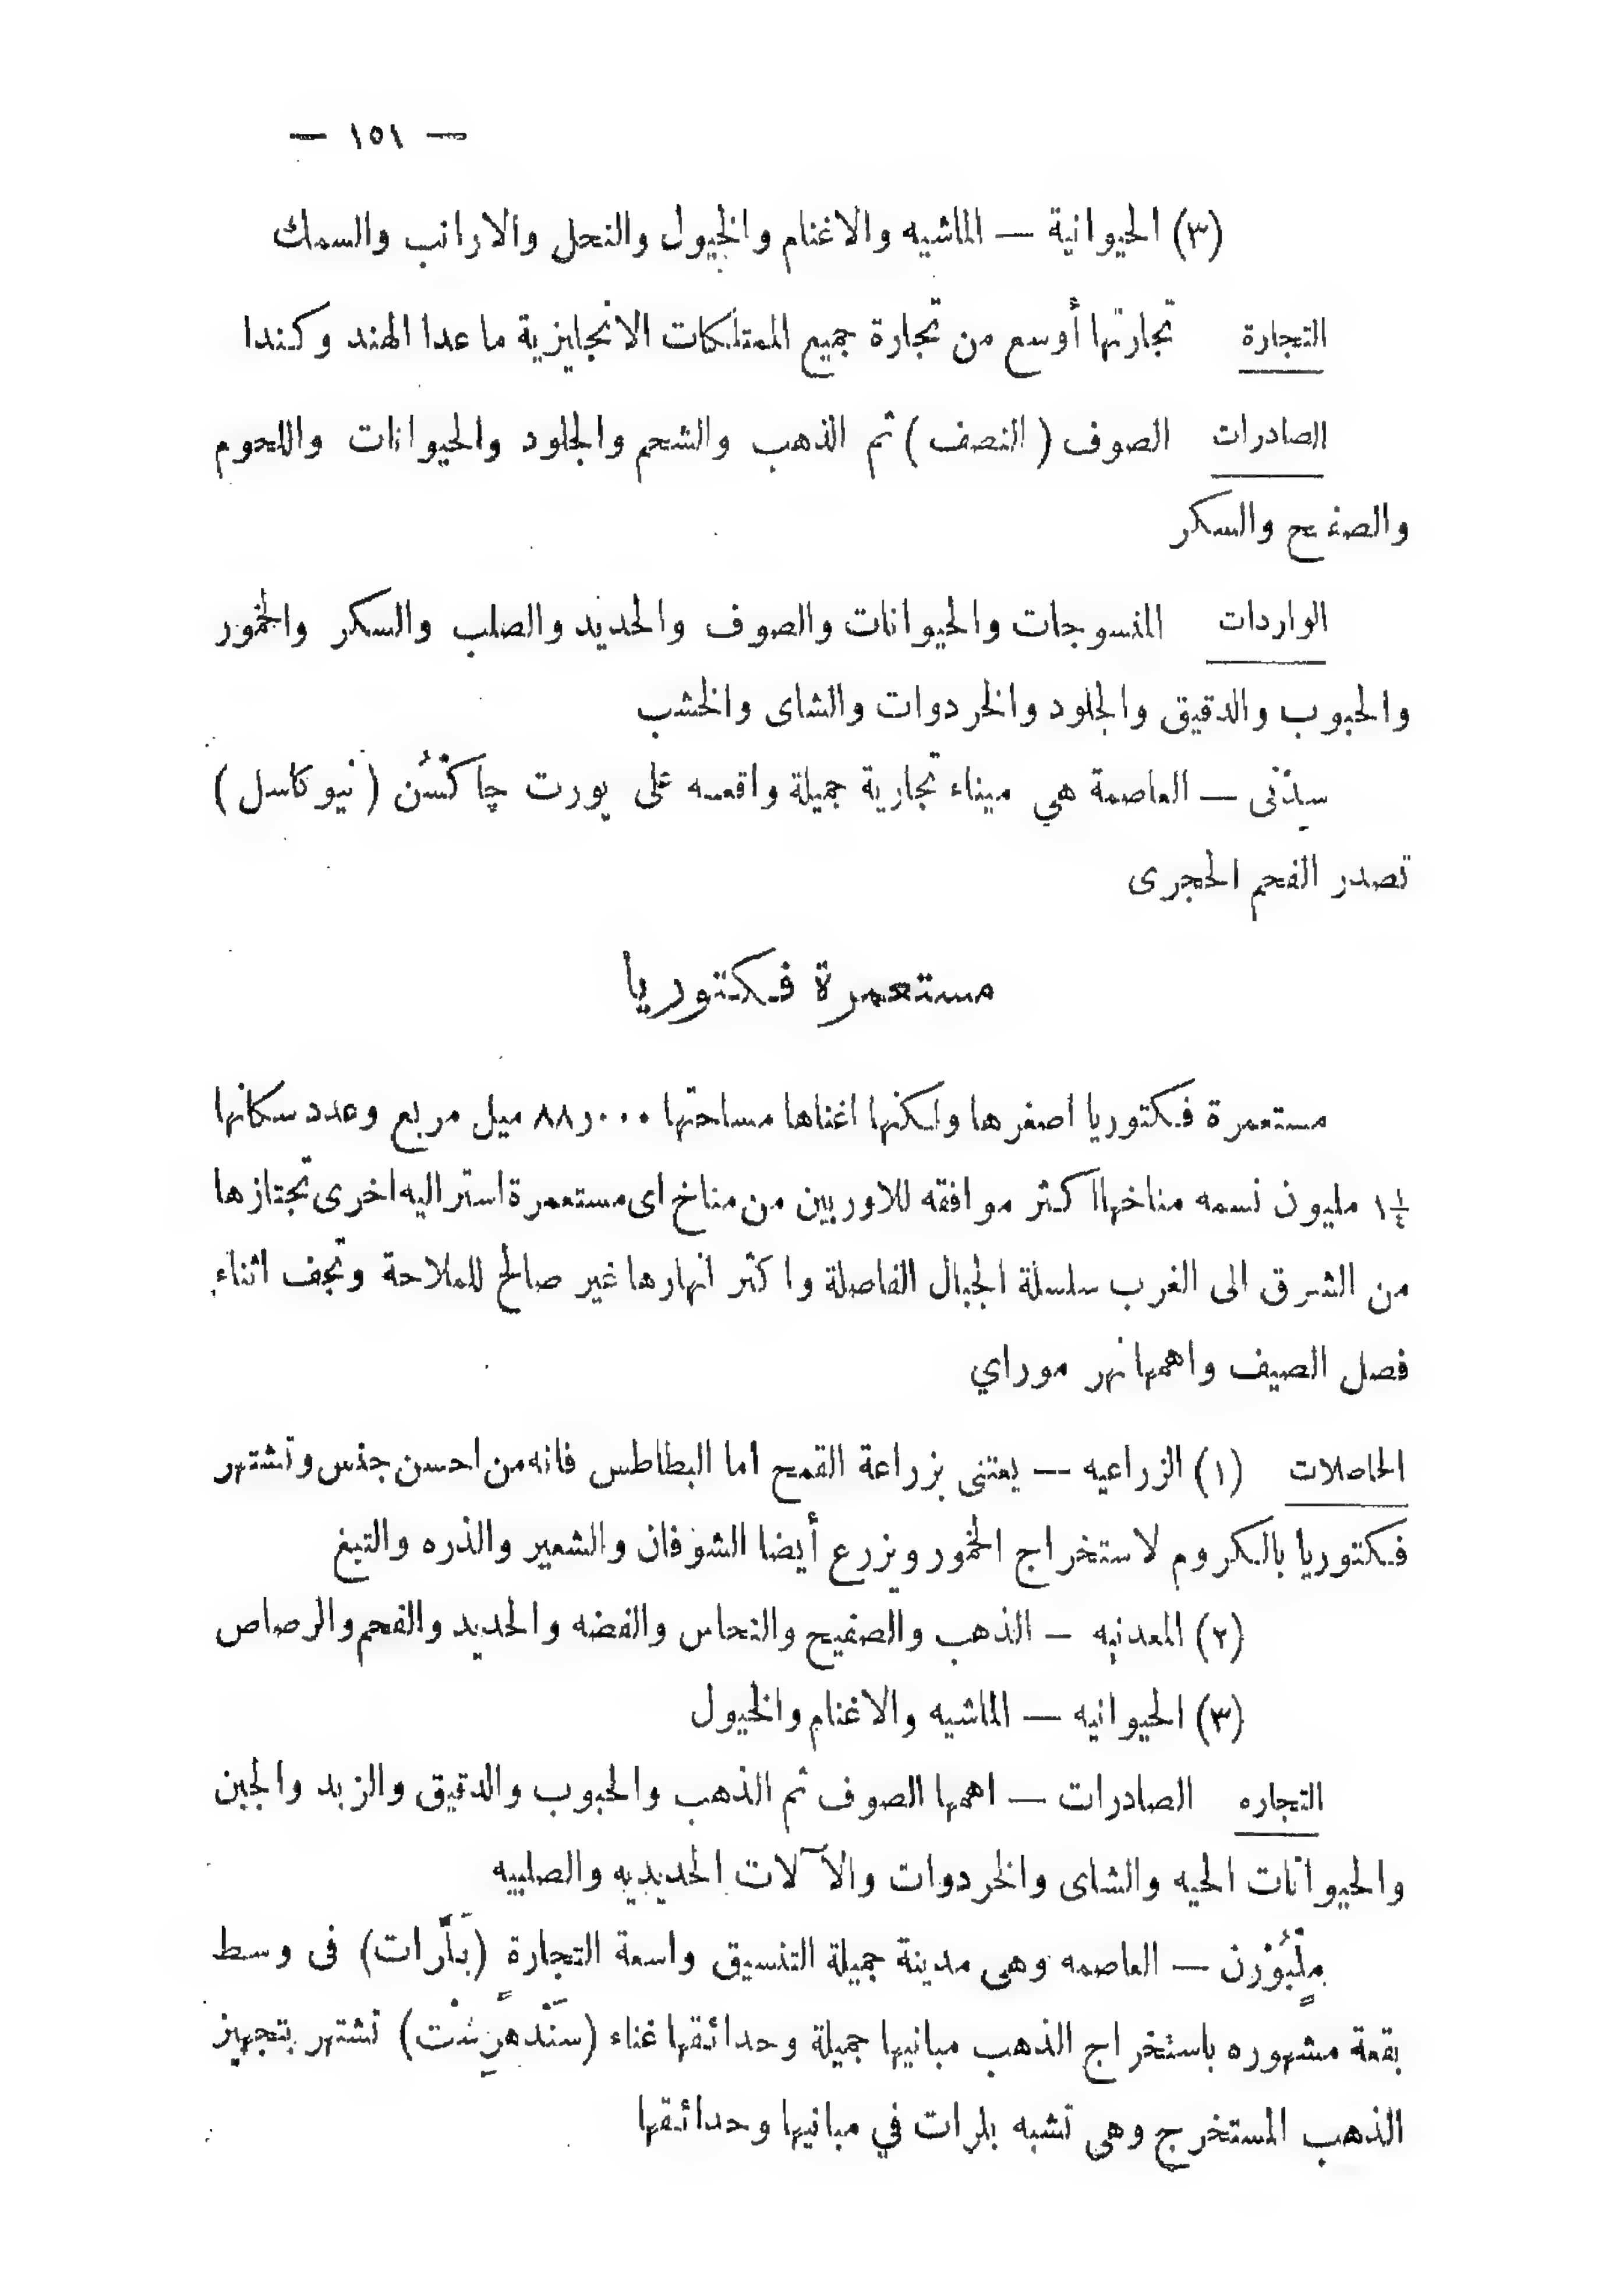 — ١٥١ —
(٣) الحيوانية — الماشيه والاغنام والخيول والنحل والارانب والسمك
التجارة تجارتها أوسع من تجارة جميع الممتلكات الانجليزية ما عدا الهند وكندا
الصادرات الصوف (النصف) ثم الذهب والشحم والجلود والحيوانات واللحوم
والصفيح والسكر
الواردات المنسوجات والحيوانات والصوف والحديد والصلب والسكر والخمور
والحبوب والدقيق والجلود والخردوات والشاى والخشب
سِدْنى — العاصمة هي ميناء تجارية جميلة واقعه على پورت چاكْسُن (نيوكاسل)
تصدر الفحم الحجرى
مستعمرة فكتوريا
مستعمرة فكتوريا اصغرها ولكنها اغناها مساحتها ٨٨٫٠٠٠ ميل مربع وعدد سكانها
١¼ مليون نسمه مناخها اكثر موافقه للاوربيين من مناخ اى مستعمرة استراليه اخرى تجتازها
من الشرق الى الغرب سلسلة الجبال الفاصلة واكثر انهارها غير صالح للملاحة وتجف اثناء
فصل الصيف واهمها نهر موراي
الحاصلات (١) الزراعيه — يعتنى بزراعة القمح اما البطاطس فانه من احسن جنس وتشتهر
فكتوريا بالكروم لاستخراج الخمور ويزرع أيضا الشوفان والشعير والذره والتبغ
(٢) المعدنيه — الذهب والصفيح والنحاس والفضه والحديد والفحم والرصاص
(٣) الحيوانيه — الماشيه والاغنام والخيول
التجاره الصادرات — اهمها الصوف ثم الذهب والحبوب والدقيق والزبد والجبن
والحيوانات الحيه والشاى والخردوات والآلات الحديديه والصلبيه
مِلْبُوْرن — العاصمه وهى مدينة جميلة التنسيق واسعة التجارة (بَلَّرات) فى وسط
بقعة مشهوره باستخراج الذهب مبانيها جميلة وحدائقها غناء (سَنْدهرِسْت) تشتهر بتجهيز
الذهب المستخرج وهى تشبه بلرات في مبانيها وحدائقها